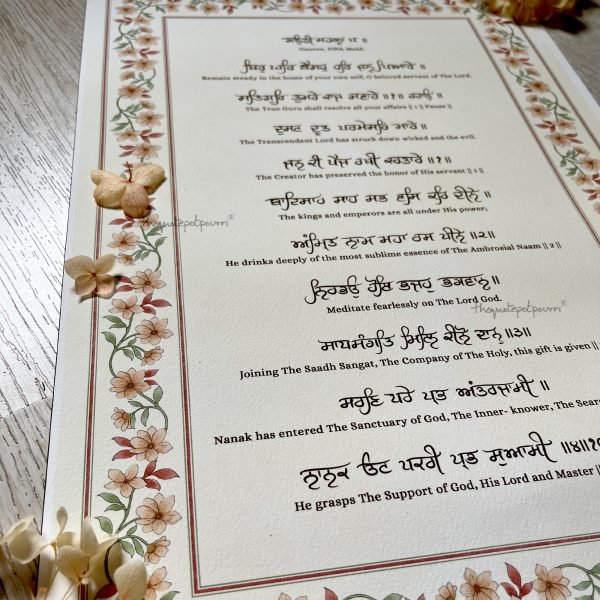 ਗਉੜੀ ਮਹਲਾ ੫ ॥
Gauree, Fifth Mehl:
ਥਿਰੁ ਘਰਿ ਬੈਸਹੁ ਹਰਿ ਜਨ ਪਿਆਰੇ ॥
Remain steady in the home of your own self, O beloved servant of The Lord.
ਸਤਿਗੁਰਿ ਤੁਮਰੇ ਕਾਜ ਸਵਾਰੇ ॥੧॥ ਰਹਾਉ ॥
The True Guru shall resolve all your affairs || 1 || Pause ||
ਦੁਸਟ ਦੂਤ ਪਰਮੇਸਰਿ ਮਾਰੇ ॥
The Transcendent Lord has struck down wicked and the evil.
ਜਨ ਕੀ ਪੈਜ ਰਖੀ ਕਰਤਾਰੇ ॥੧॥
The Creator has preserved the honor of His servant || 1 ||
ਬਾਦਿਸਾਹ ਸਾਹ ਸਭ ਵਸਿ ਕਰਿ ਦੀਨੇ ॥
The kings and emperors are all under His power;
thequotepotpourri®
ਅੰਮ੍ਰਿਤ ਨਾਮ ਮਹਾ ਰਸ ਪੀਨੇ ॥੨॥
He drinks deeply of the most sublime essence of The Ambrosial Naam || 2 ||
ਨਿਰਭਉ ਹੋਇ ਭਜਹੁ ਭਗਵਾਨ ॥
Meditate fearlessly on The Lord God.
thequotepotpourri®
ਸਾਧਸੰਗਤਿ ਮਿਲਿ ਕੀਨੋ ਦਾਨੁ ॥੩॥
Joining The Saadh Sangat, The Company of The Holy, this gift is given ||
ਸਰਣਿ ਪਰੇ ਪ੍ਰਭ ਅੰਤਰਜਾਮੀ ॥
Nanak has entered The Sanctuary of God, The Inner- knower, The Sear
ਨਾਨਕ ਓਟ ਪਕਰੀ ਪ੍ਰਭ ਸੁਆਮੀ ॥੪॥੧੦
He grasps The Support of God, His Lord and Master ||